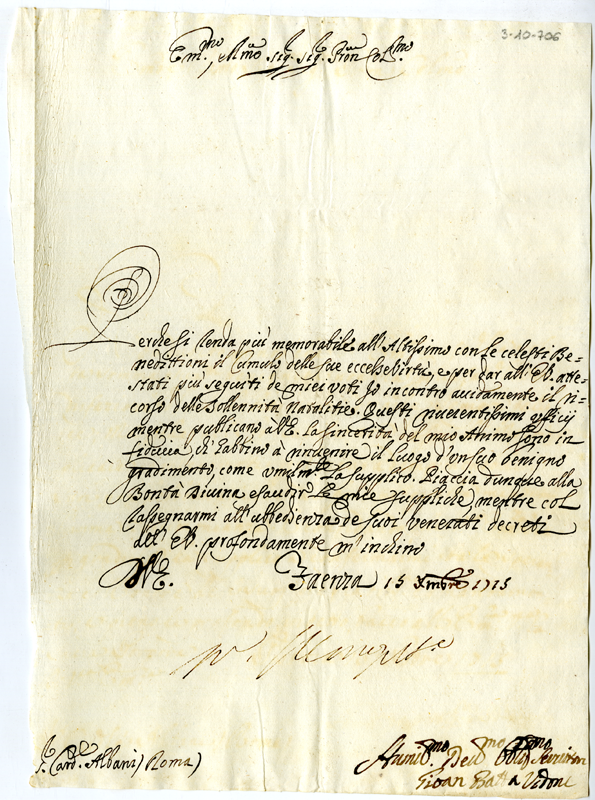 3-10-706
Em.mo, e Rmo Sig. Sig. Pron Col.mo
Perche si renda più memorabile all'Altissimo con le celesti Be=
nedittioni il Cumulo delle sue eccelse virtù, e per dar all'E.V. atte=
stati più seguiti de miei voti Io incontro auidamente il ri=
corso delle Sollennità Natalitie. Questi riuerentissimi offitij
mentre publicano all'E.V. la sincerità del mio Animo sono in
fiducia di rinuenire il luogo d'un suo benigno
gradimento, come umilm.te La supplico. Piaccia dunque alla
Bontà Diuina esaudir le mie suppliche, mentre col
rassegnarmi all'ubbedienza de suoi venerati decreti
all'E.V. profondamente m'inchino
D.V.E.
Faenza 15 Xmbre 1715
S. Card.le Albani / Roma)
Humil.mo Deu.mo Obl.mo Seruitor
Gioan Batt'a Vidoni